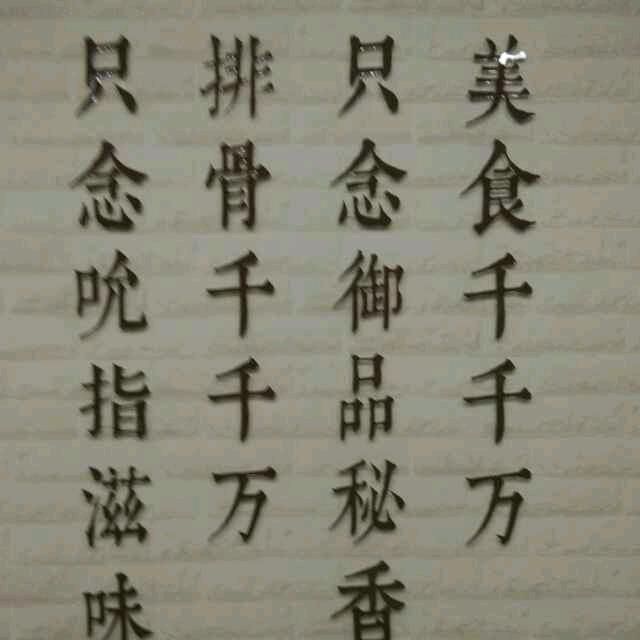 美食千千万
只念御品秘香
排骨千千万
只念吮指滋味